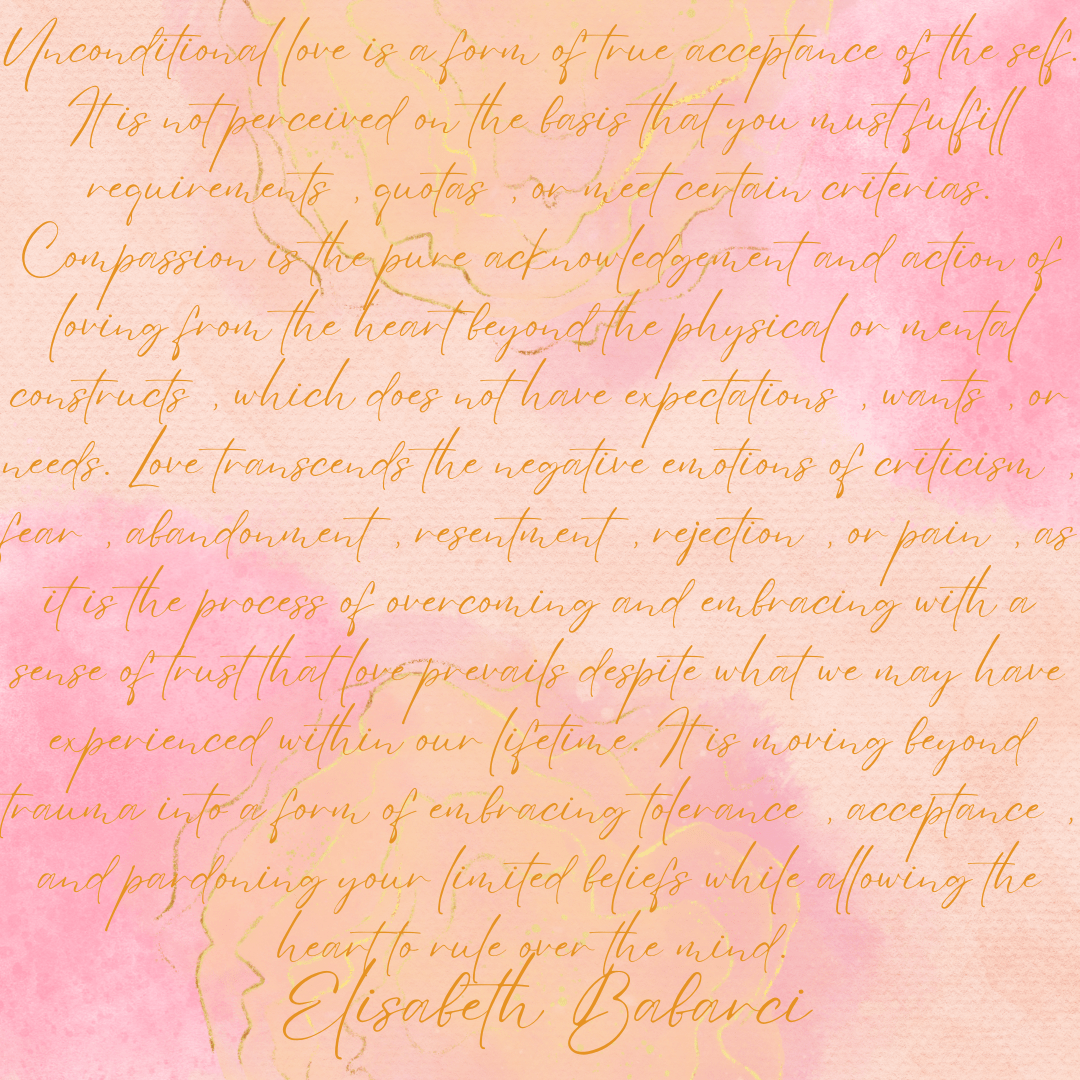 Unconditional love is a form of true acceptance of the self.
It is not perceived on the basis that you must fulfill
requirements , quotas , or meet certain criterias.
Compassion is the pure acknowledgement and action of
loving from the heart beyond the physical or mental
constructs , which does not have expectations , wants , or
needs. Love transcends the negative emotions of criticism ,
fear , abandonment , resentment , rejection , or pain , as
it is the process of overcoming and embracing with a
sense of trust that love prevails despite what we may have
experienced within our lifetime. It is moving beyond
trauma into a form of embracing tolerance , acceptance ,
and pardoning your limited beliefs while allowing the
heart to rule over the mind.
Elisabeth Babarci